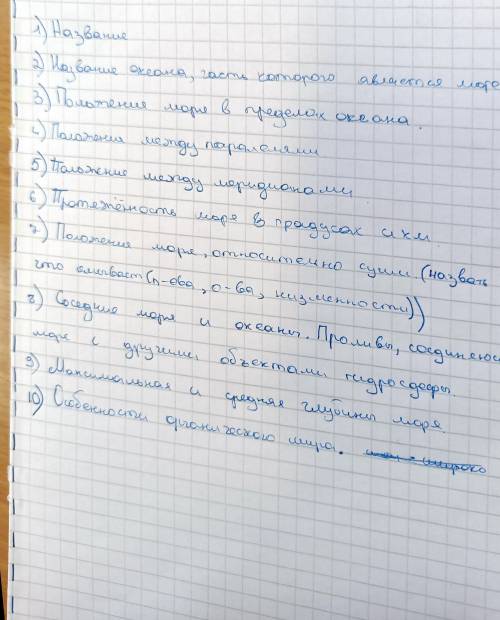 1) Название
2) Название океана, часть которого является море
3) Положение моря в пределах океана.
4) Положения между паралелями
5) Положение между меридианами
6) Протяжённость море в градусах и км.
7) Положения море, относительно суши. (назвать
что омывает (п-ова, о-ва, низменности))
8) Соседние моря и океаны. Проливы, соединяющ
море с другими объектами гидросферы.
9) Максимальная и средняя глубины моря
10) Особенности органического мира.